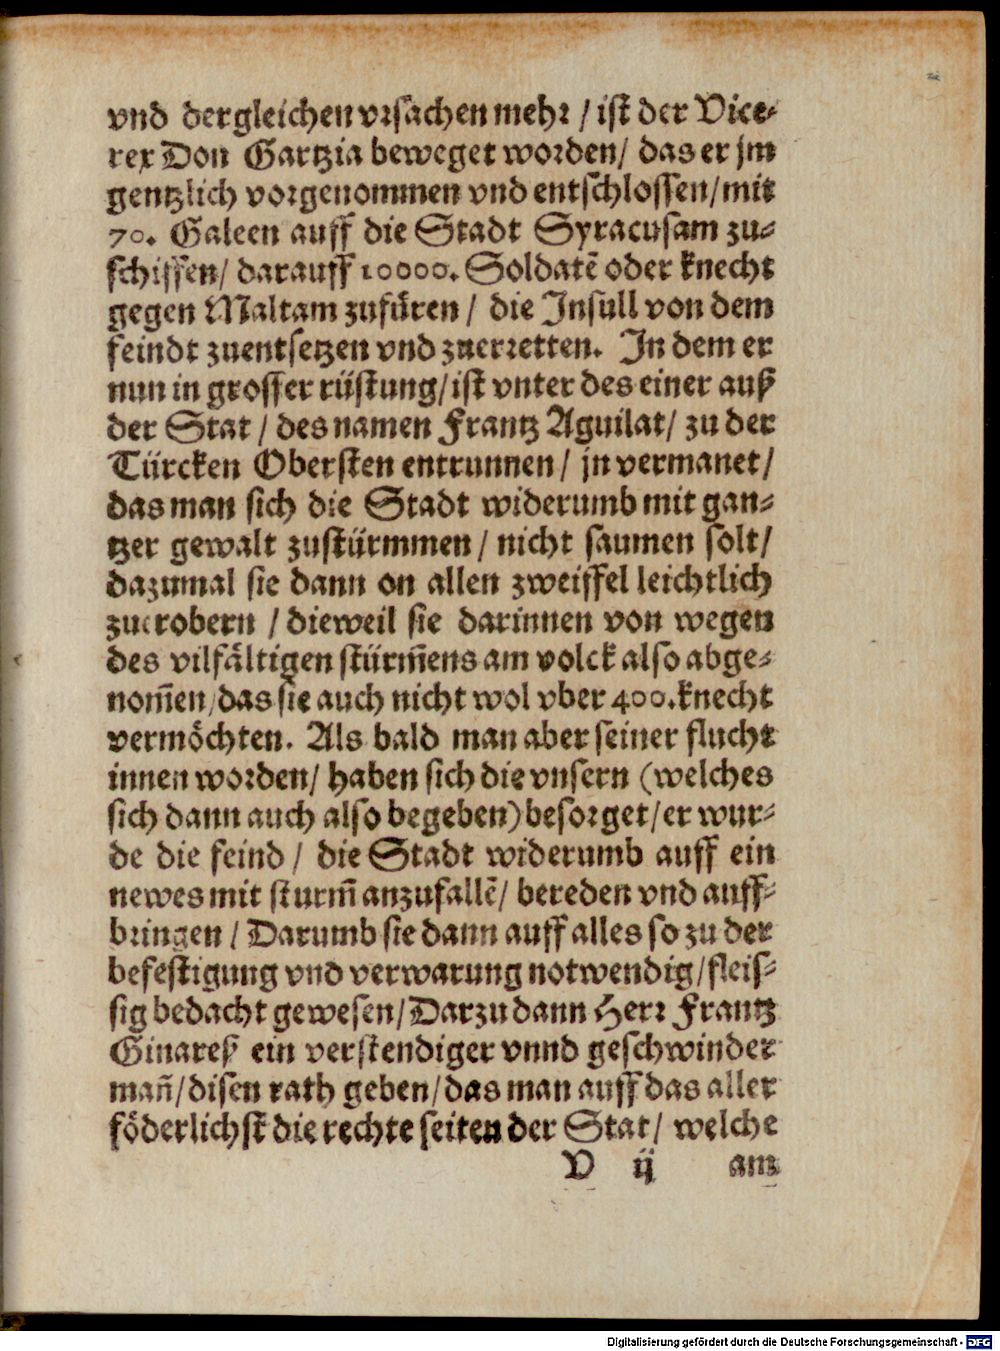 vnd dergleichen vrsachen mehr / ist der Vice-
rex Don Gartzia beweget worden / das er jm
gentzlich vorgenommen vnd entschlossen / mit
70. Galeen auff die Stadt Syracusam zu-
schiffen / darauff 10000. Soldatẽ oder knecht
gegen Maltam zufüren / die Insull von dem
feindt zuentsetzen vnd zuerretten. In dem er
nun in grosser rüstung / ist vnter des einer auß
der Stat / des namen Frantz Aguilat / zu der
Türcken Obersten entrunnen / jn vermanet /
das man sich die Stadt widerumb mit gan-
tzer gewalt zustürmmen / nicht saumen solt /
dazumal sie dann on allen zweiffel leichtlich
zuerobern / dieweil sie darinnen von wegen
des vilfältigen stürm̃ens am volck also abge-
nom̃en / das sie auch nicht wol vber 400. knecht
vermöchten. Als bald man aber seiner flucht
innen worden / haben sich die vnsern (welches
sich dann auch also begeben) besorget / er wur-
de die feind / die Stadt widerumb auff ein
newes mit sturm̃ anzufallẽ / bereden vnd auff-
bringen / Darumb sie dann auff alles so zu der
befestigung vnd verwarung notwendig / fleis-
sig bedacht gewesen / Darzu dann Herr Frantz
Ginareß ein verstendiger vnnd geschwinder
mañ / disen rath geben / das man auff das aller
föderlichst die rechte seiten der Stat / welche
V ij am
Digitalisierung gefördert durch die Deutsche Forschungsgemeinschaft - DFG